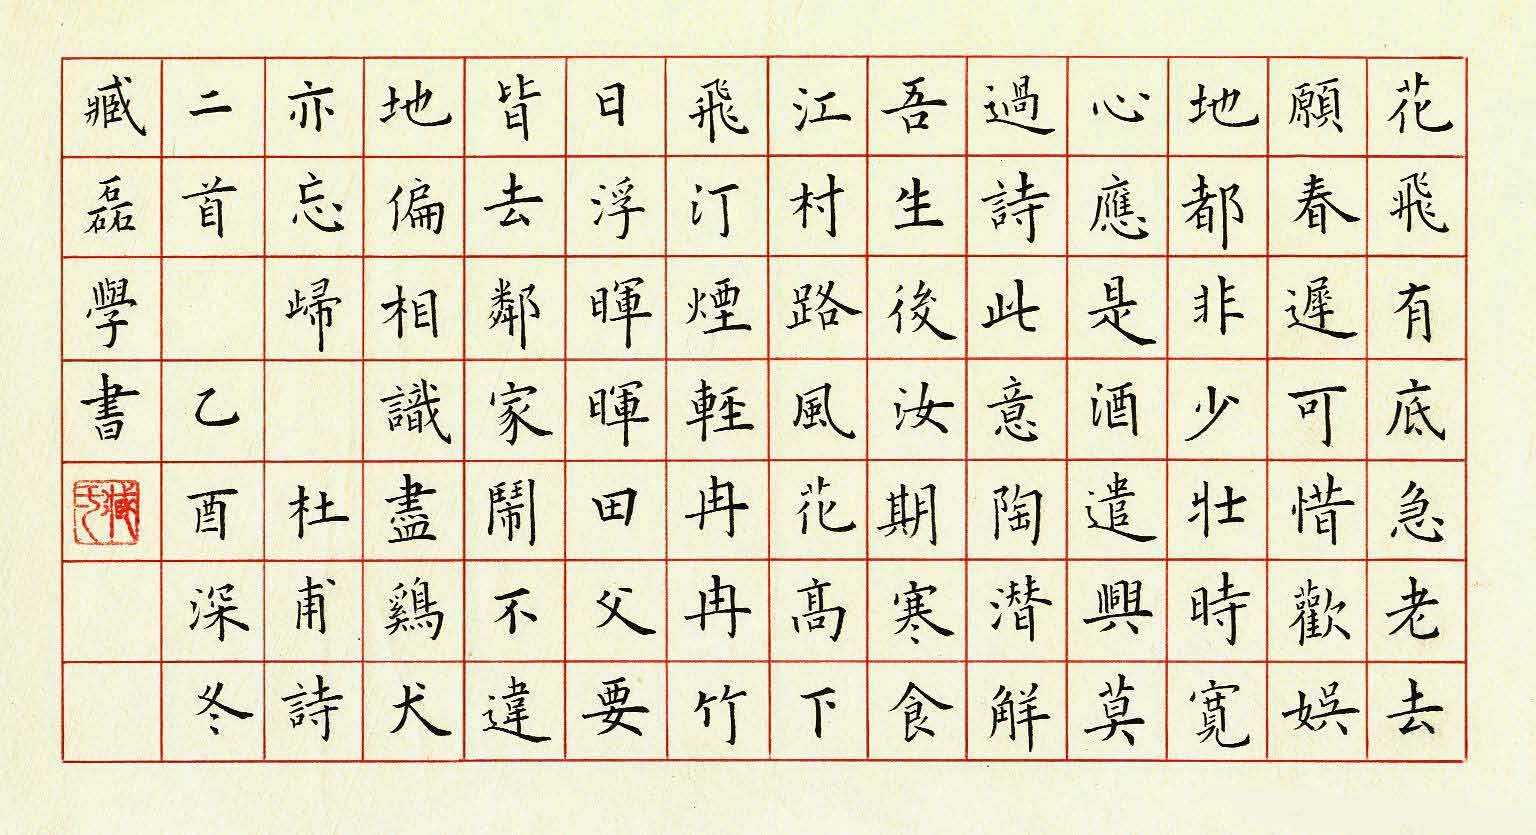 花飛有底急老去
願春遲可惜歡娛
地都非少壯時寬
心應是酒遣興莫
過詩此意陶潛解
吾生後汝期寒食
江村路風花髙下
飛汀煙輕冉冉竹
日浮暉暉田父要
皆去鄰家鬧不違
地偏相識盡鷄犬
亦忘歸 杜甫詩
二首 乙酉深冬
臧磊學書
臧氏